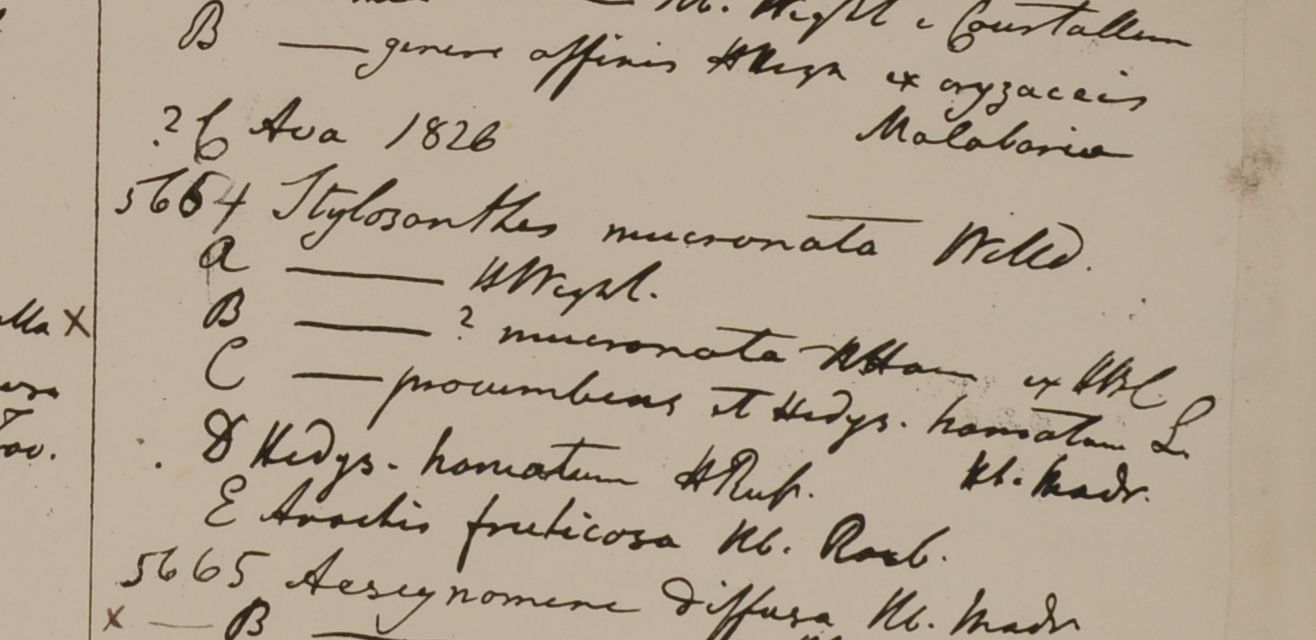 Hb. Wight e Courtallum
B — genere affinis HWight ex oryzaceis
Malabaria
?C Ava 1826
5664 Stylosanthes mucronata Willd.
a — HWight.
B — ? mucronata HHam ex HBC
C — procumbens et Hedys. hamatum L.
Hb. Madr.
D Hedys. hamatum HRup.
E Arachis fruticosa Hb. Roxb.
5665 Aeschynomene diffusa Hb. Madr
x — B —
lla x